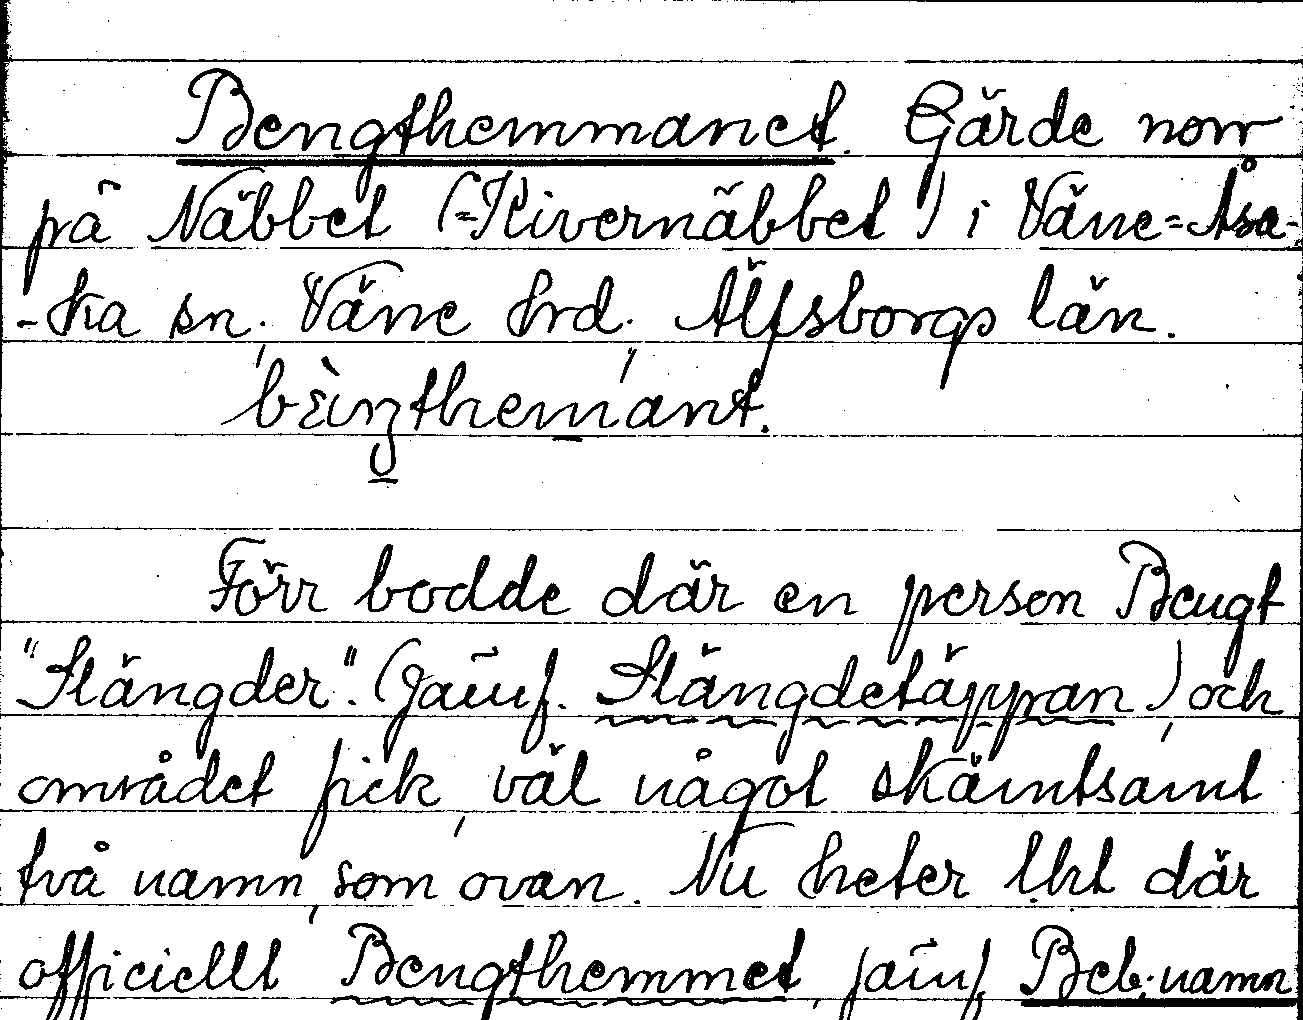 Bengthemmanet. Gärde norr
på Näbbet (=Kivernäbbet) i Väne=Åsa-
-ka sn, Väne hrd, Älfsborgs län.
Förr bodde där en person Bengt
"Slängder". (jämf. Slängdetäppan) och
området fick, väl något skämtsamt
två namn, som ovan. Nu heter lht där
officiellt Bengthemmet, jämf. Beb.namn